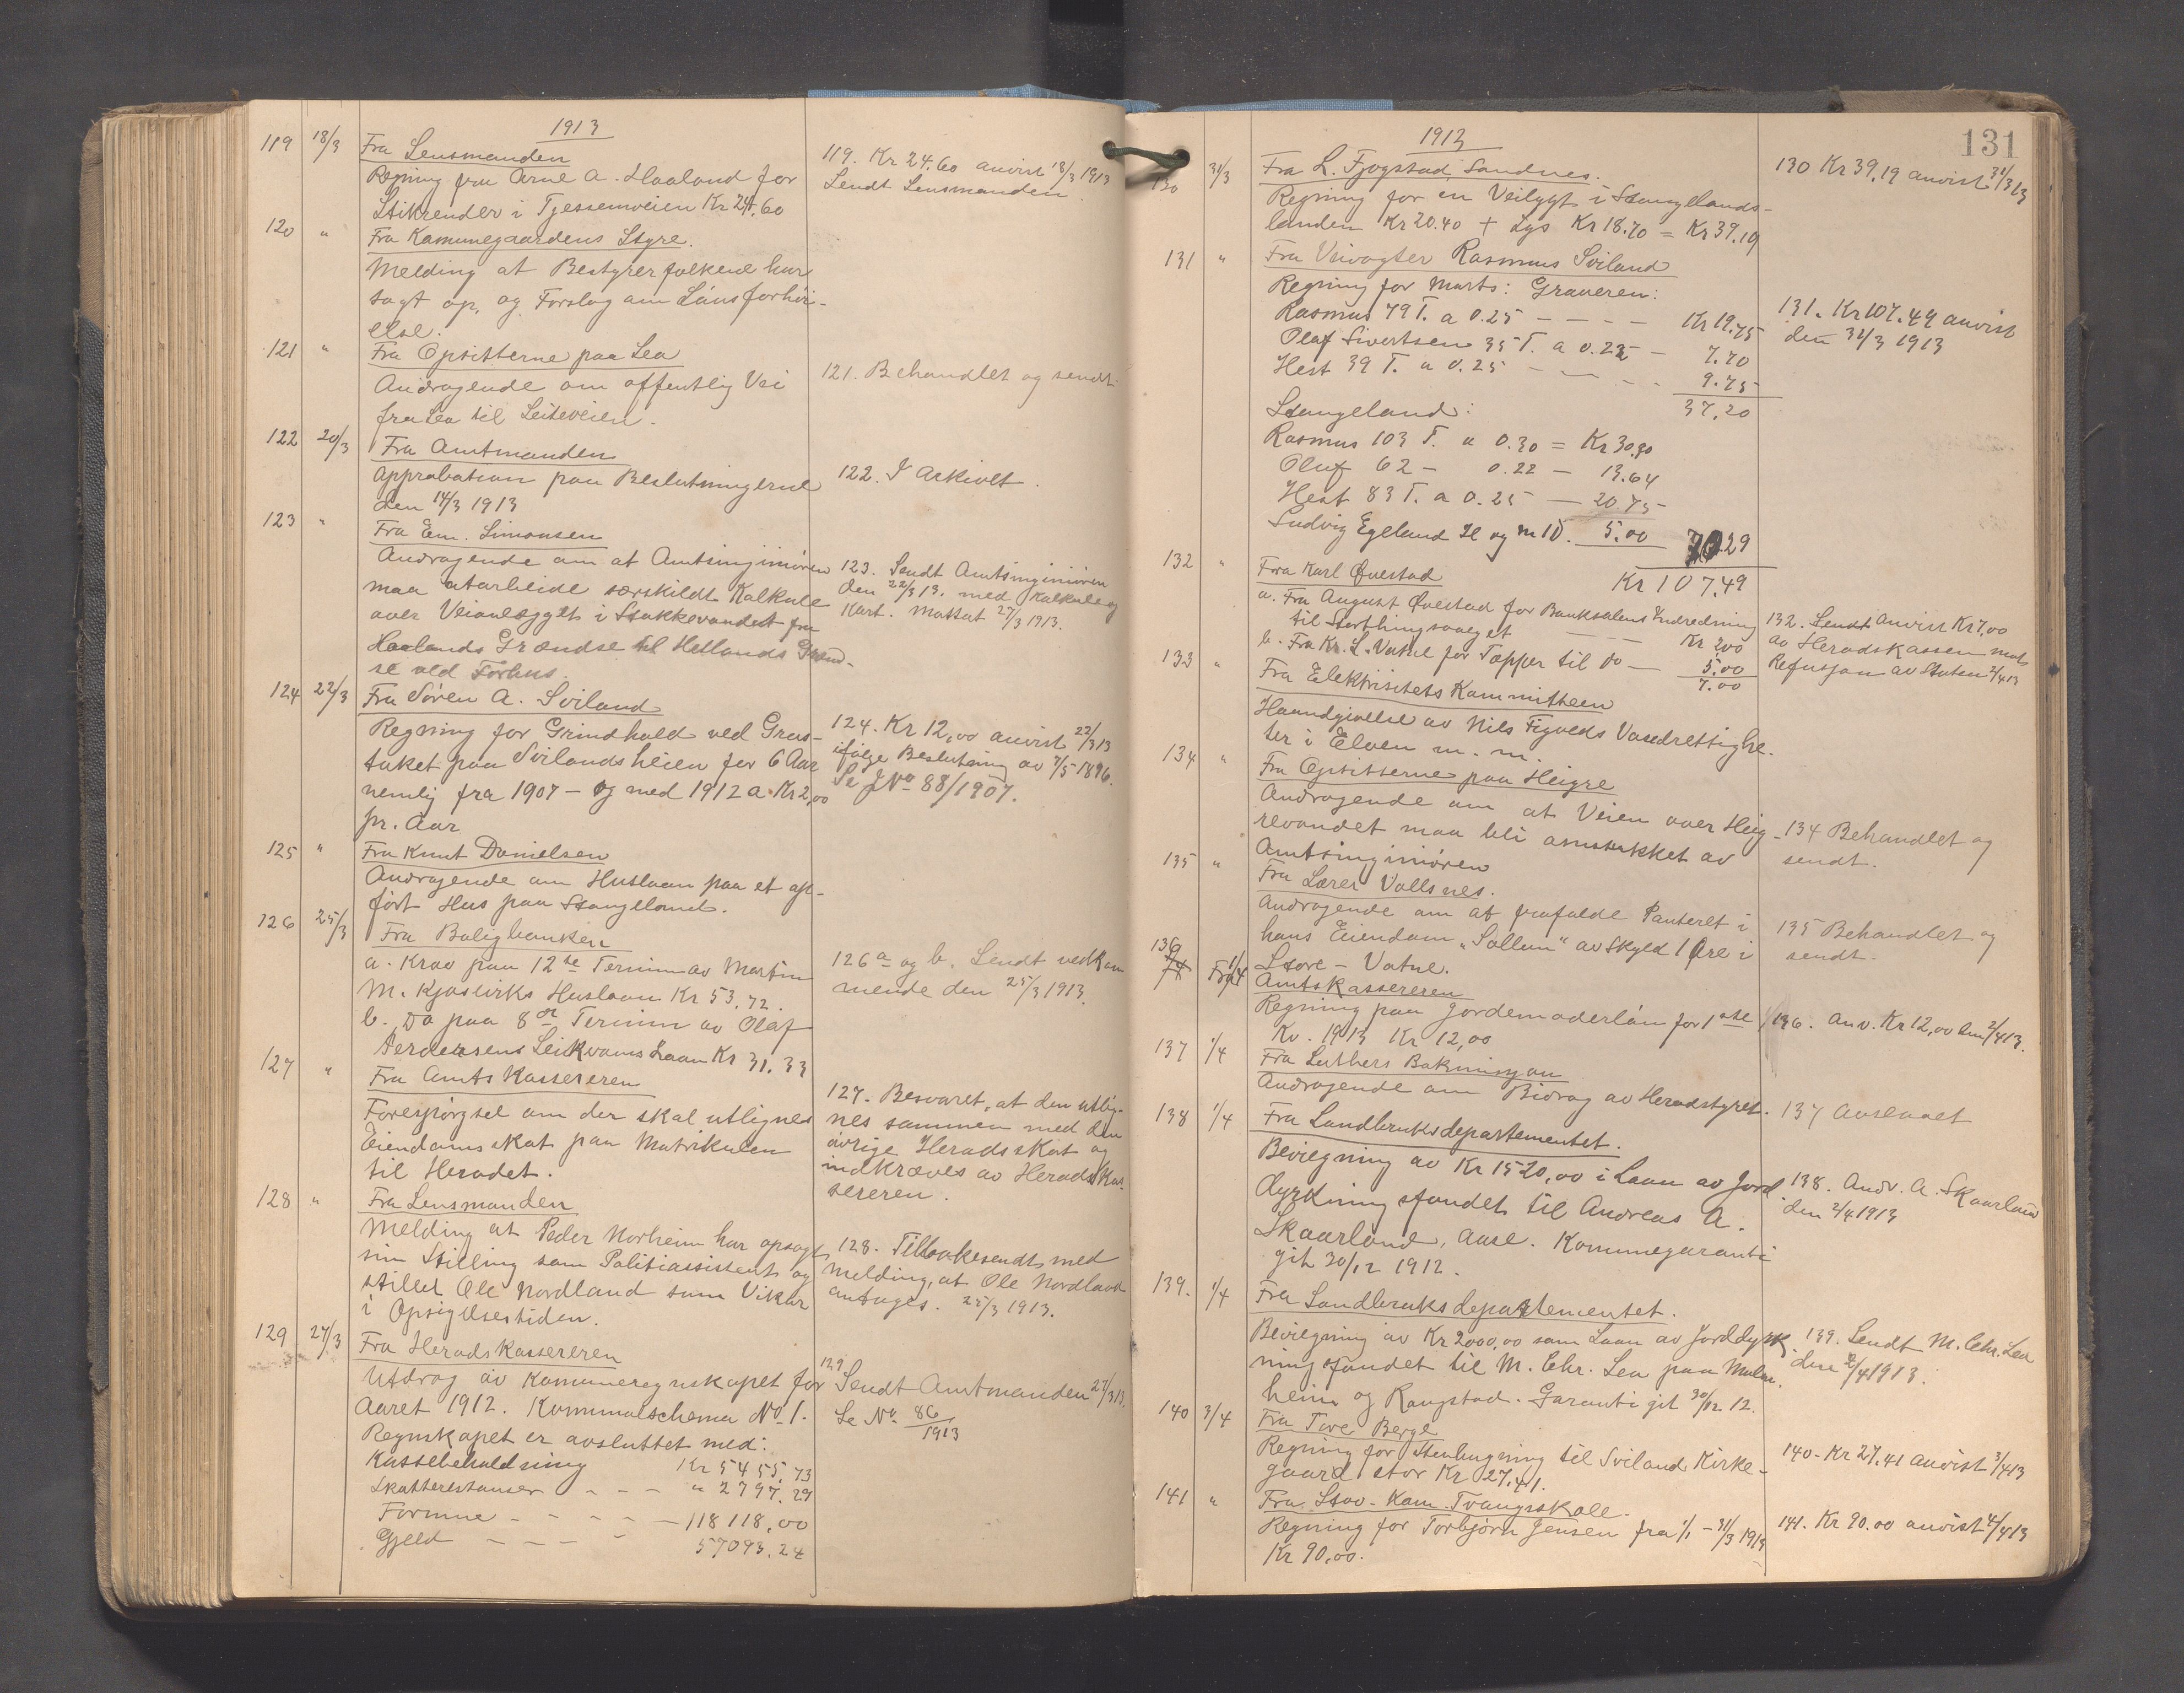 1913
119 18/3 Fra Lensmanden
Regning fra Arne A. Haaland for
Stikrender i Tjessemveien Kr 24.60
119. Kr 24.60 anvist 18/3 1913
Sendt Lensmanden.
120 " Fra Kommunegaardens Styre.
Melding at Bestyrerfolkene har
sagt op, og Forslag om Lönsforhöi-
else.
121 " Fra Opsitterne paa Lea
Andragende om offentlig Vei
fra Lea til Leiteveien.
121. Behandlet og sendt.
122 20/3 Fra Amtmanden
Approbation paa Beslutningerne
den 14/3 1913
122. I Arkivet.
123 " Fra Em. Simonsen
Andragende om at Amtsingeniören
maa utarbeide særskildt Kalkule
over Veianlegget i Stokkevandet fra
Haalands Grændse til Hetlands Grænd-
se ved Forhus.
123. Sendt Amtsingeniören
den 22/3 13. med Kalkule og
Kart. Mottat 27/3 1913.
124 22/3 Fra Sören A. Sviland
Regning for Grindhold ved Grus-
taket paa Svilandsheien for 6 Aar
nemlig fra 1907 - og med 1912 a Kr 2,00
pr. Aar
124. Kr 12,00 anvist 22/3 13
ifölge Beslutning av 7/5 1896.
Se J No 88/1907.
125 " Fra Knut Danielsen
Andragende om Huslaan paa et op-
fört Hus paa Stangeland.
126 25/3 Fra Boligbanken
a. Krav paa 12te Termin av Martin
M. Kjosviks Huslaan Kr 53,72.
b. Do paa 8de Termin av Olaf
Pedersens Leikvams Laan Kr 31.33
126 a og b. Sendt vedkom
mende den 25/3 1913.
127 " Fra Amtskassereren
Forespörgsel om der skal utlignes
Eiendomsskat paa Matrikulen
til Heradet.
127. Besvaret, at den utlig-
nes sammen med den
övrige Heradsskat og
indkræves av Heradskas-
sereren.
128 " Fra Lensmanden
Melding at Peder Norheim har opsagt
sin Stilling som Politiassistent og
stillet Ole Nordland som Vikar
i Opsigelsestiden.
128. Tilbakesendt med
Melding, at Ole Nordland
antages. 25/3 1913.
129 27/3 Fra Heradskassereren
Utdrag av Kommuneregnskapet for
Aaret 1912. Kommunalschema No 1.
Regnskapet er avsluttet med:
Kassebeholdning Kr 5455.73
Skatterestanser - - - " 2797.29
Formue - - - - - 118118,00
Gjeld - - - - 57093.24
129 Sendt Amtmanden 27/3 13.
Se No 86/1913
131
1913
130 31/3 Fra L. Fjogstad, Sandnes.
Regning for en Veilygt i Stangelands-
landen Kr 20.40 + Lys Kr 18.70 = Kr 39.19
130 Kr 39,19 anvist 31/3 13
131 " Fra Veivogter Rasmus Sviland
Regning for Marts: Graveren:
Rasmus 79 T. a 0.25 - - - - Kr 19.75
Olaf Sivertsen 35 T. a 0.22 - 7.70
Hest 39 T. a 0.25 - - - - 9.75
37,20
Stangeland:
Rasmus 103 T. a 0.30 = Kr 30.90
Oluf 62 - 0.22 - 13.64
Hest 83 T. a 0.25 - 20.75
Ludvig Egeland H og m 10. 5.00 70.29
Kr 107.49
131. Kr 107.49 anvist
den 31/3 1913
132 " Fra Karl Övestad
a. Fra August Övestad for Banksalens Indredning
til Storthingsvalget - - - Kr 2,00
b. Fra Kr. L. Vatne for Tæpper til do - 5.00
7.00
132. Sendt Anvist Kr 7,00
av Heradskassen mot
Refusjon av Staten 2/4 13
133 " Fra Elektrisitets Kommitheen
Haandgivelse av Nils Figveds Vandrettighe-
ter i Elven m. m.
134 " Fra Opsitterne paa Heigre
Andragende om at Veien over Heig-
revandet maa bli omstukket av
Amtsingeniören
134 Behandlet og
sendt.
135 " Fra Lærer Vollsnes.
Andragende om at frafalde Panteret i
hans Eiendom "Sollum" av Skyld 1 Øre i
Store - Vatne.
135 Behandlet og
sendt.
136 1/4 Fra Amtskassereren
Regning paa Jordemoderlön for 1ste
Kv. 1913 Kr 12,00
136. Anv. Kr 12,00 den 2/4 13.
137 1/4 Fra Luthers Bokmisjon
Andragende om Bidrag av Heradstyret.
137 Avslaaet
138 1/4 Fra Landbruksdepartementet.
Bevilgning av Kr 1520,00 i Laan av Jord
dyrkningsfondet til Andreas A.
Skaarland, Aase. Kommunegaranti
git 30/12 1912.
138. Andr. A. Skaarland
den 2/4 1913
139. 1/4 Fra Landbruksdepartementet.
Bevilgning av Kr 2000,00 som Laan av Jorddyrk
ningsfondet til M. Chr. Lea paa Malm-
heim og Raugstad. Garanti git 30/12 12.
139. Sendt M. Chr. Lea
den 2/4 1913.
140 3/4 Fra Tore Berge
Regning for Stenhugning til Sviland Kirke-
gaard stor Kr 27,41.
140. Kr 27.41 anvist 3/4 13
141 " Fra Stav. Kom. Tvangsskole.
Regning for Torbjörn Jensen fra 1/1 - 31/3 1913
Kr 90,00.
141. Kr 90.00 anvist 4/4 13